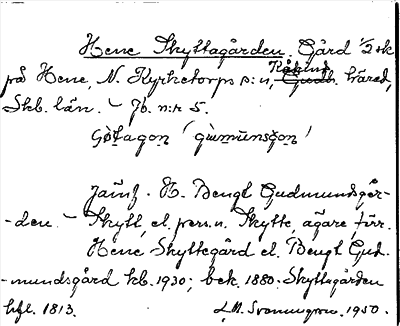 Hene Skyttagården. Gård 1/2 sk
Kåkinds
på Hene, N. Kyrketorps s:n, Gudh. härad,
Skb. län. – Jb. n:r 5.
Jämf. H. Bengt Gudmundsgår-
-den. – Skytt, el. pers.n. Skytte, ägare förr.
Hene Skyttegård el. Bengt Gud-
-mundsgård kb. 1930; bek. 1880. Skyttagården
hfl. 1813.
L.M. Svanungren. 1950.